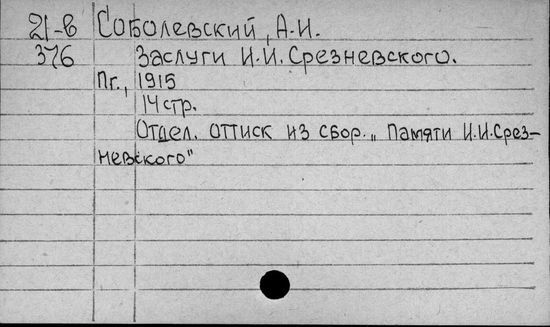 21-в Соболевский, А.И.
376 Заслуги И.И. Срезневского.
Пг., 1915
14 стр.
Отдел. оттиск из сбор. „Памяти И.И.Срез-
невского"